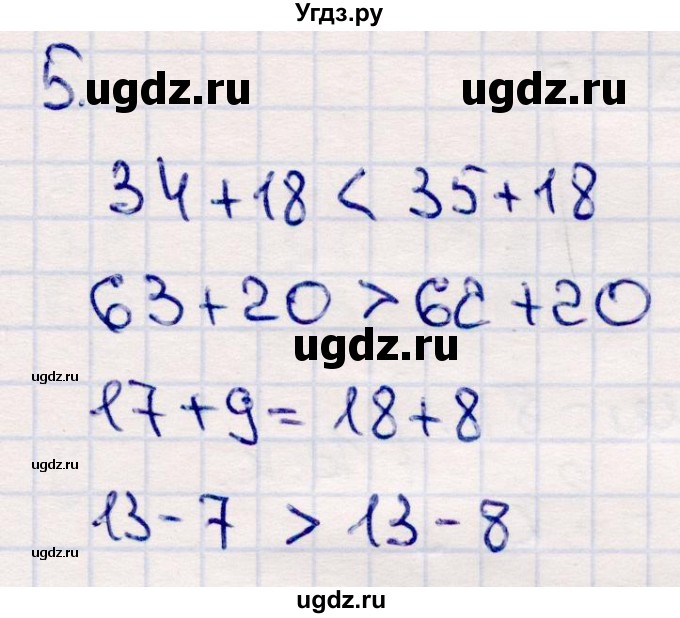 Угдз.ру
5. ugdz.ru ugdz.ru
34+18 < 35+18
63+20 > 62+20
ugdz.ru
ugdz.ru 17+9 = 18+8
ugdz.ru
13-7 > 13-8
ugdz.ru
ugdz.ru